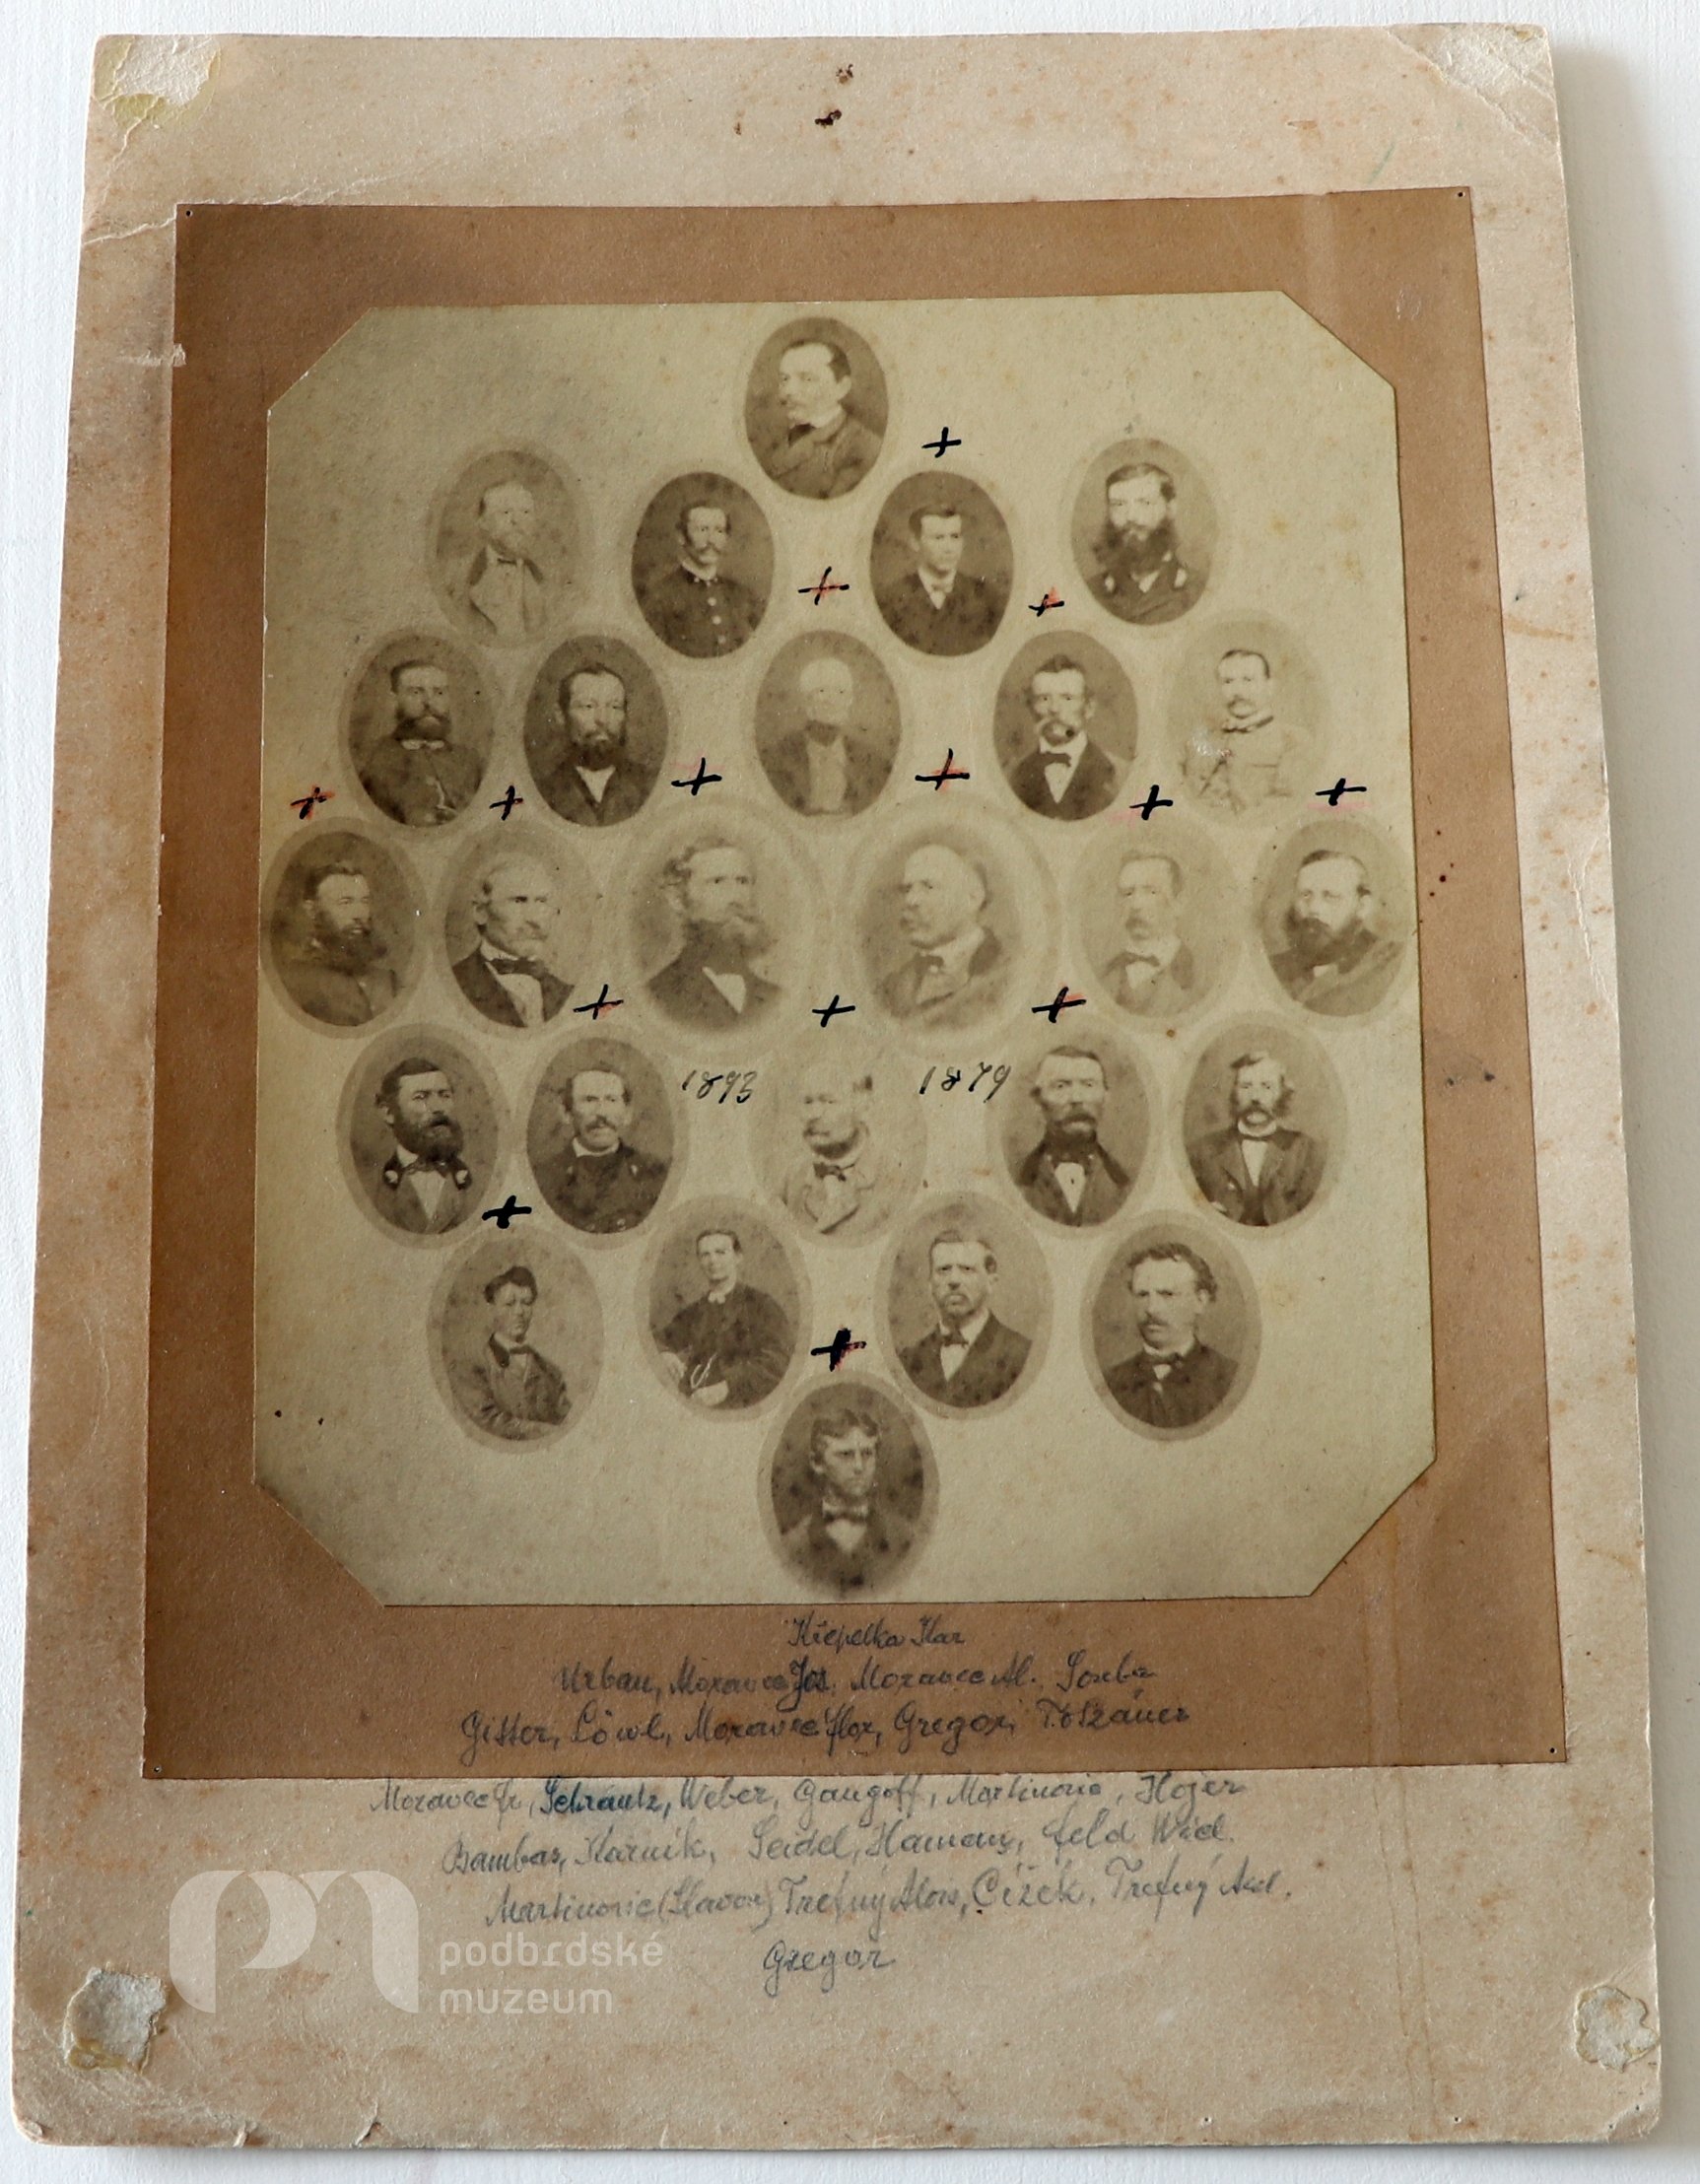 1893 1879
Křepelka Kar
Urban, Moravec Jos. Moravec Al. Souba
Gister, Löwl, Moravec flor, Gregor,
Moravec fr, Schrantz, Weber, Gangoff, Martinovic, Hojer
Bambas, Karnik, Seidel, Hamanj, feld Wid.
Martinovic (Slavon) Trefný Alois, Čížek, Trefný Aul.
Gregor
podbrdské
muzeum